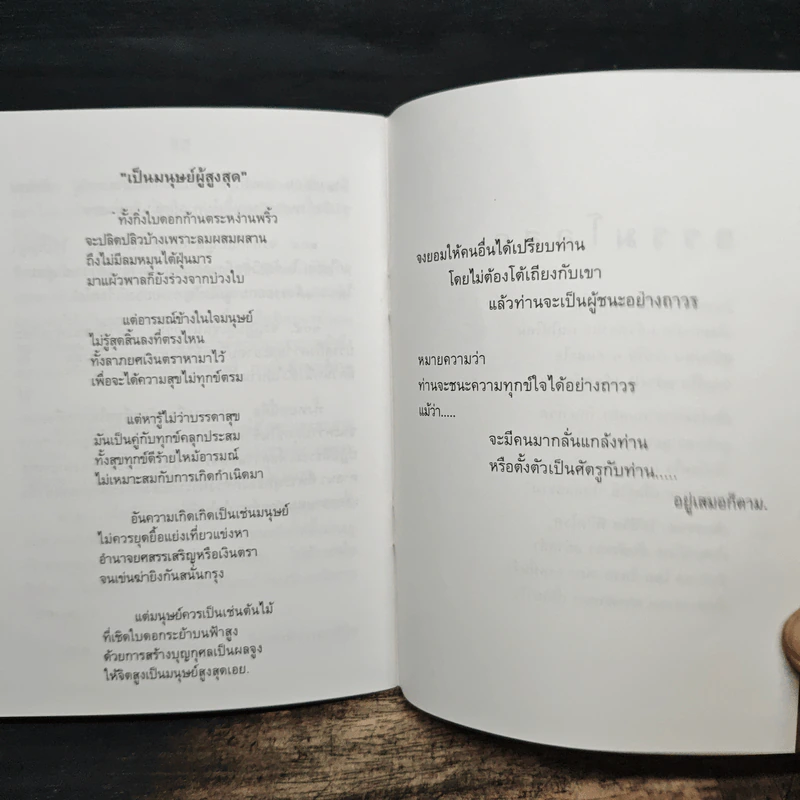 "เป็นมนุษย์ผู้สูงสุด"
ทั้งกิ่งใบดอกก้านตระหง่านพริ้ว
จะปลิดปลิวบ้างเพราะลมผสมผสาน
ถึงไม่มีลมหมุนไต้ฝุ่นมาร
มาแผ้วพาลก็ยังร่วงจากปวงใบ
แต่อารมณ์ข้างในใจมนุษย์
ไม่รู้สุดสิ้นลงที่ตรงไหน
ทั้งลาภยศเงินตราหามาไว้
เพื่อจะได้ความสุขไม่ทุกข์ตรม
แต่หารู้ไม่ว่าบรรดาสุข
มันเป็นคู่กับทุกข์คลุกประสม
ทั้งสุขทุกข์ดีร้ายไหม้อารมณ์
ไม่เหมาะสมกับการเกิดกำเนิดมา
อันความเกิดเกิดเป็นเช่นมนุษย์
ไม่ควรยุดยื้อแย่งเที่ยวแข่งหา
อำนาจยศสรรเสริญหรือเงินตรา
จนเข่นฆ่ายิงกันสนั่นกรุง
แต่มนุษย์ควรเป็นเช่นต้นไม้
ที่เชิดใบดอกระย้าบนฟ้าสูง
ด้วยการสร้างบุญกุศลเป็นผลจูง
ให้จิตสูงเป็นมนุษย์สูงสุดเอย.
จงยอมให้คนอื่นได้เปรียบท่าน
โดยไม่ต้องโต้เถียงกับเขา
แล้วท่านจะเป็นผู้ชนะอย่างถาวร
หมายความว่า
ท่านจะชนะความทุกข์ใจได้อย่างถาวร
แม้ว่า.....
จะมีคนมากลั่นแกล้งท่าน
หรือตั้งตัวเป็นศัตรูกับท่าน.....
อยู่เสมอก็ตาม.